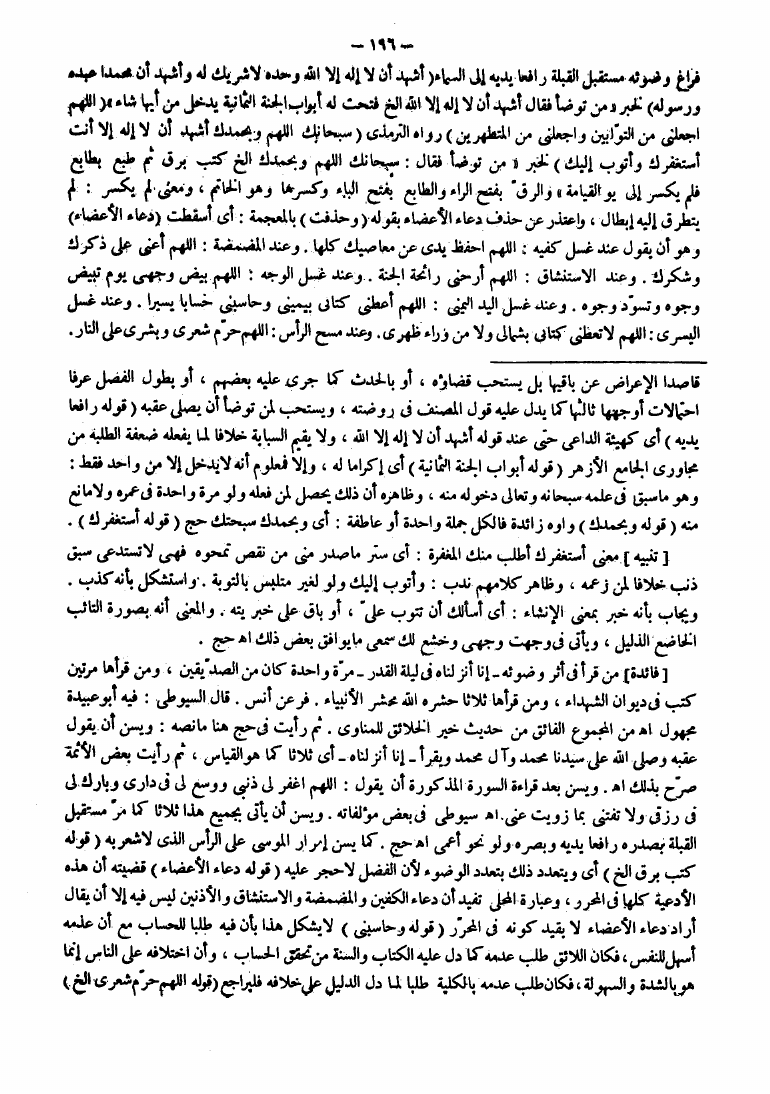 – ١٩٦ –
فراغ وضوئه مستقبل القبلة رافعا يديه إلى السماء ( أشهد أن لا إله إلا الله وحده لاشريك له وأشهد أن محمدا عبده
ورسوله ) لخبر « من توضأ فقال أشهد أن لا إله إلا الله الخ فتحت له أبواب الجنة الثمانية يدخل من أيها شاء » ( اللهم
اجعلنى من التوّابين واجعلنى من المتطهرين ) رواه الترمذى ( سبحانك اللهم وبحمدك أشهد أن لا إله إلا أنت
أستغفرك وأتوب إليك ) لخبر « من توضأ فقال : سبحانك اللهم وبحمدك الخ كتب برق ثم طبع بطابع
فلم يكسر إلى يوم القيامة » والرق بفتح الراء والطابع بفتح الباء وكسرها وهو الخاتم ، ومعنى لم يكسر : لم
يتطرق إليه إبطال ، واعتذر عن حذف دعاء الأعضاء بقوله ( وحذفت ) بالمعجمة : أى أسقطت ( دعاء الأعضاء )
وهو أن يقول عند غسل كفيه : اللهم احفظ يدى عن معاصيك كلها . وعند المضمضة : اللهم أعنى على ذكرك
وشكرك . وعند الاستنشاق : اللهم أرحنى رائحة الجنة . وعند غسل الوجه : اللهم بيض وجهى يوم تبيض
وجوه وتسوّد وجوه . وعند غسل اليد اليمنى : اللهم أعطنى كتابى بيمينى وحاسبنى حسابا يسيرا . وعند غسل
اليسرى : اللهم لاتعطنى كتابى بشمالى ولا من وراء ظهرى . وعند مسح الرأس : اللهم حرّم شعرى وبشرى على النار .
قاصدا الإعراض عن باقيها بل يستحب قضاؤه ، أو بالحدث كما جرى عليه بعضهم ، أو بطول الفصل عرفا
احتمالات أوجهها ثالثها كما يدل عليه قول المصنف فى روضته ، ويستحب لمن توضأ أن يصلى عقبه ( قوله رافعا
يديه ) أى كهيئة الداعى حتى عند قوله أشهد أن لا إله إلا الله ، ولا يقيم السبابة خلافا لما يفعله ضعفة الطلبة من
مجاورى الجامع الأزهر ( قوله أبواب الجنة الثمانية ) أى إكراما له ، وإلا فمعلوم أنه لايدخل إلا من واحد فقط :
وهو ماسبق فى علمه سبحانه وتعالى دخوله منه ، وظاهره أن ذلك يحصل لمن فعله ولو مرة واحدة فى عمره ولامانع
منه ( قوله وبحمدك ) واوه زائدة فالكل جملة واحدة أو عاطفة : أى وبحمدك سبحتك حج ( قوله أستغفرك ) .
[ تنبيه ] معنى أستغفرك أطلب منك المغفرة : أى ستر ماصدر منى من نقص تمحوه فهى لاتستدعى سبق
ذنب خلافا لمن زعمه ، وظاهر كلامهم ندب : وأتوب إليك ولو لغير متلبس بالتوبة . واستشكل بأنه كذب .
ويجاب بأنه خبر بمعنى الإنشاء : أى أسألك أن تتوب علىّ ، أو باق على خبريته . والمعنى أنه بصورة التائب
الخاضع الذليل ، ويأتى فى وجهت وجهى وخشع لك سمعى مايوافق بعض ذلك اه حج .
[ فائدة ] من قرأ فى أثر وضوئه ـ إنا أنزلناه فى ليلة القدر ـ مرّة واحدة كان من الصدّيقين ، ومن قرأها مرتين
كتب فى ديوان الشهداء ، ومن قرأها ثلاثا حشره الله محشر الأنبياء . فر عن أنس . قال السيوطى : فيه أبو عبيدة
مجهول اه من المجموع الفائق من حديث خير الخلائق للمناوى . ثم رأيت فى حج هنا مانصه : ويسن أن يقول
عقبه وصلى الله على سيدنا محمد وآل محمد ويقرأ ـ إنا أنزلناه ـ أى ثلاثا كما هو القياس ، ثم رأيت بعض الأئمة
صرّح بذلك اه . ويسن بعد قراءة السورة المذكورة أن يقول : اللهم اغفر لى ذنبى ووسع لى فى دارى وبارك لى
فى رزقى ولا تفتنى بما زويت عنى اه سيوطى فى بعض مؤلفاته . ويسن أن يأتى بجميع هذا ثلاثا كما مرّ مستقبل
القبلة بصدره رافعا يديه وبصره ولو نحو أعمى اه حج . كما يسن إمرار الموسى على الرأس الذى لاشعر به ( قوله
كتب برق الخ ) أى ويتعدد ذلك بتعدد الوضوء لأن الفضل لاحجر عليه ( قوله دعاء الأعضاء ) قضيته أن هذه
الأدعية كلها فى المحرر ، وعبارة المحلى تفيد أن دعاء الكفين والمضمضة والاستنشاق والأذنين ليس فيه إلا أن يقال
أراد دعاء الأعضاء لا يقيد كونه فى المحرّر ( قوله وحاسبنى ) لايشكل هذا بأن فيه طلبا للحساب مع أن عدمه
أسهل للنفس ، فكان اللائق طلب عدمه كما دل عليه الكتاب والسنة من تحقق الحساب ، وأن اختلافه على الناس إنما
هو بالشدة والسهولة ، فكان طلب عدمه بالكلية طلبا لما دل الدليل على خلافه فليراجع ( قوله اللهم حرّم شعرى الخ )